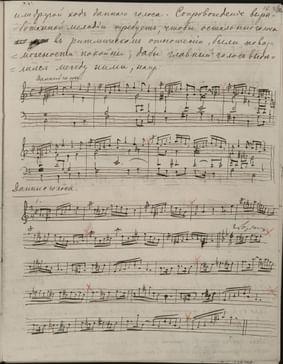 или другой ходъ даннаго голоса. Сопровожденіе выра-
ботанной мелодіи требуетъ, чтобы остальные голоса
въ ритмическомъ отношеніи, были по воз-
можности покойны, дабы главный голосъ выдѣ-
лялся между ними, напр.
Данный голосъ
Данные голоса.